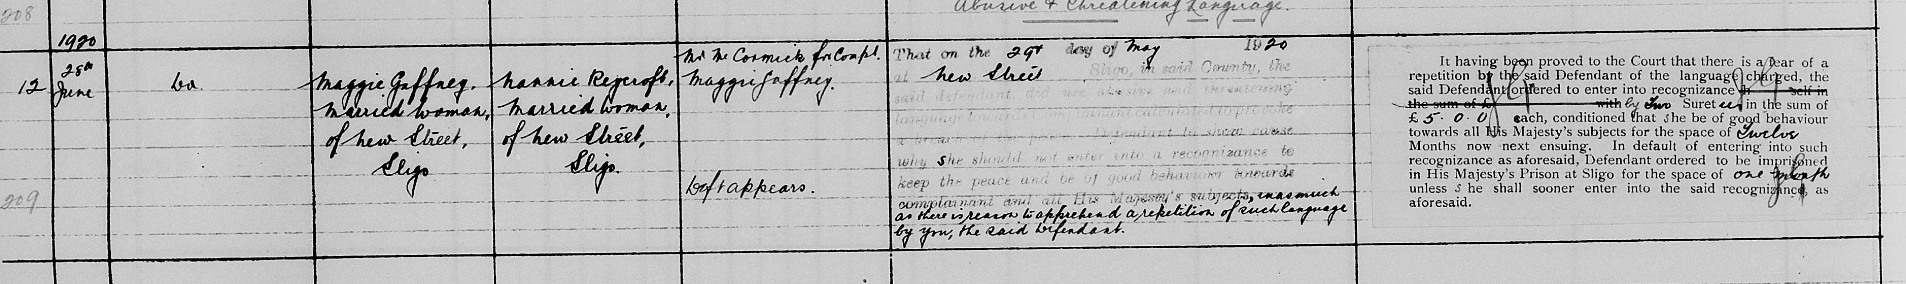 208
Abusive & Threatening Language.
1920
12
28th
June
do.
Maggie Gaffney,
Married Woman,
of New Street,
Sligo
Nannie Reycroft,
Married Woman,
of New Street,
Sligo.
Mr McCormick for Compl.
Maggie Gaffney.
Deft appears.
That on the 29th day of May 1920
at New Street Sligo, in said County, the
said defendant, did use abusive and threatening
language towards Complainant calculated to provoke
a breach of the peace. Defendant to show cause
why she should not enter into a recognizance to
keep the peace and be of good behaviour towards
complainant and all His Majesty's subjects, inasmuch
as there is reason to apprehend a repetition of such language
by you, the said Defendant.
It having been proved to the Court that there is a fear of a
repetition by the said Defendant of the language charged, the
said Defendant ordered to enter into recognizance h self in
the sum of £ with by Two Sureties in the sum of
£5.0.0 each, conditioned that she be of good behaviour
towards all His Majesty's subjects for the space of Twelve
Months now next ensuing. In default of entering into such
recognizance as aforesaid, Defendant ordered to be imprisoned
in His Majesty's Prison at Sligo for the space of one month
unless she shall sooner enter into the said recognizance, as
aforesaid.
209